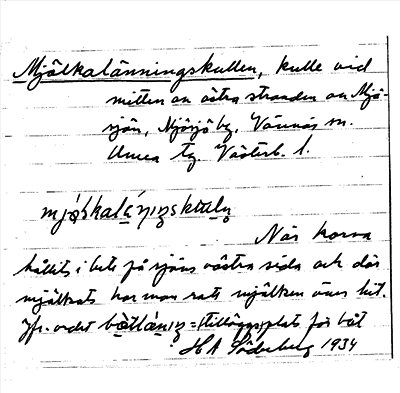 Mjölkalänningskullen, kulle vid
mitten av östra stranden av Mjö-
sjön, Mjösjö by, Vännäs sn.
Umeå tg. Västerb. l.
När korna
hållits i bete på sjöns västra sida och där
mjölkats har man rott mjölken över hit.
Jfr. ordet = (tilläggs)plats för båt
HA Söderberg 1934